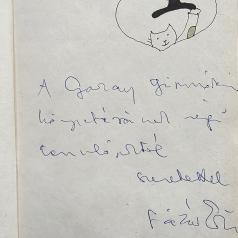 A Garay gimnázium
könyvtárának régi
tanulójától
szeretettel
Lázár Ervin